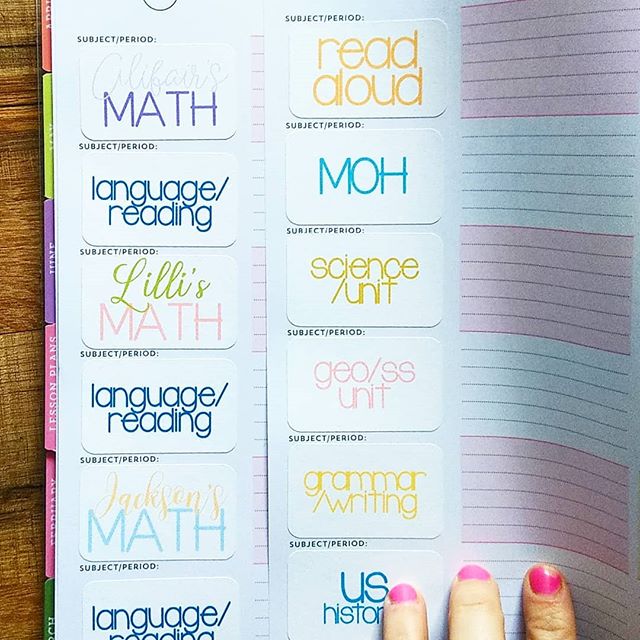 APRI
MAY
JUNE
LESSON PLANS
FEBRUARY
RCH
SUBJECT/PERIOD:
Alifair's
MATH
SUBJECT/PERIOD:
language/
reading
SUBJECT/PERIOD:
Lilli's
MATH
SUBJECT/PERIOD:
language/
reading
SUBJECT/PERIOD:
Jackson's
MATH
SUBJECT/PERIOD:
language/
reading
SUBJECT/PERIOD:
read
aloud
SUBJECT/PERIOD:
MOH
SUBJECT/PERIOD:
science
/unit
SUBJECT/PERIOD:
geo/ss
unit
SUBJECT/PERIOD:
grammar
/writing
SUBJECT/PERIOD:
us
history